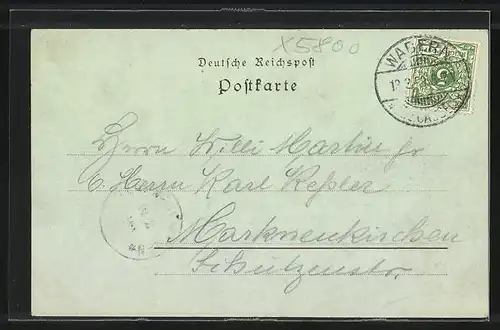 X5800
Deutsche Reichspost
Postkarte
WABERN
5
Herrn Willi Martin jr
b. Herrn Karl Keßler
Markneukirchen
Schützenstr